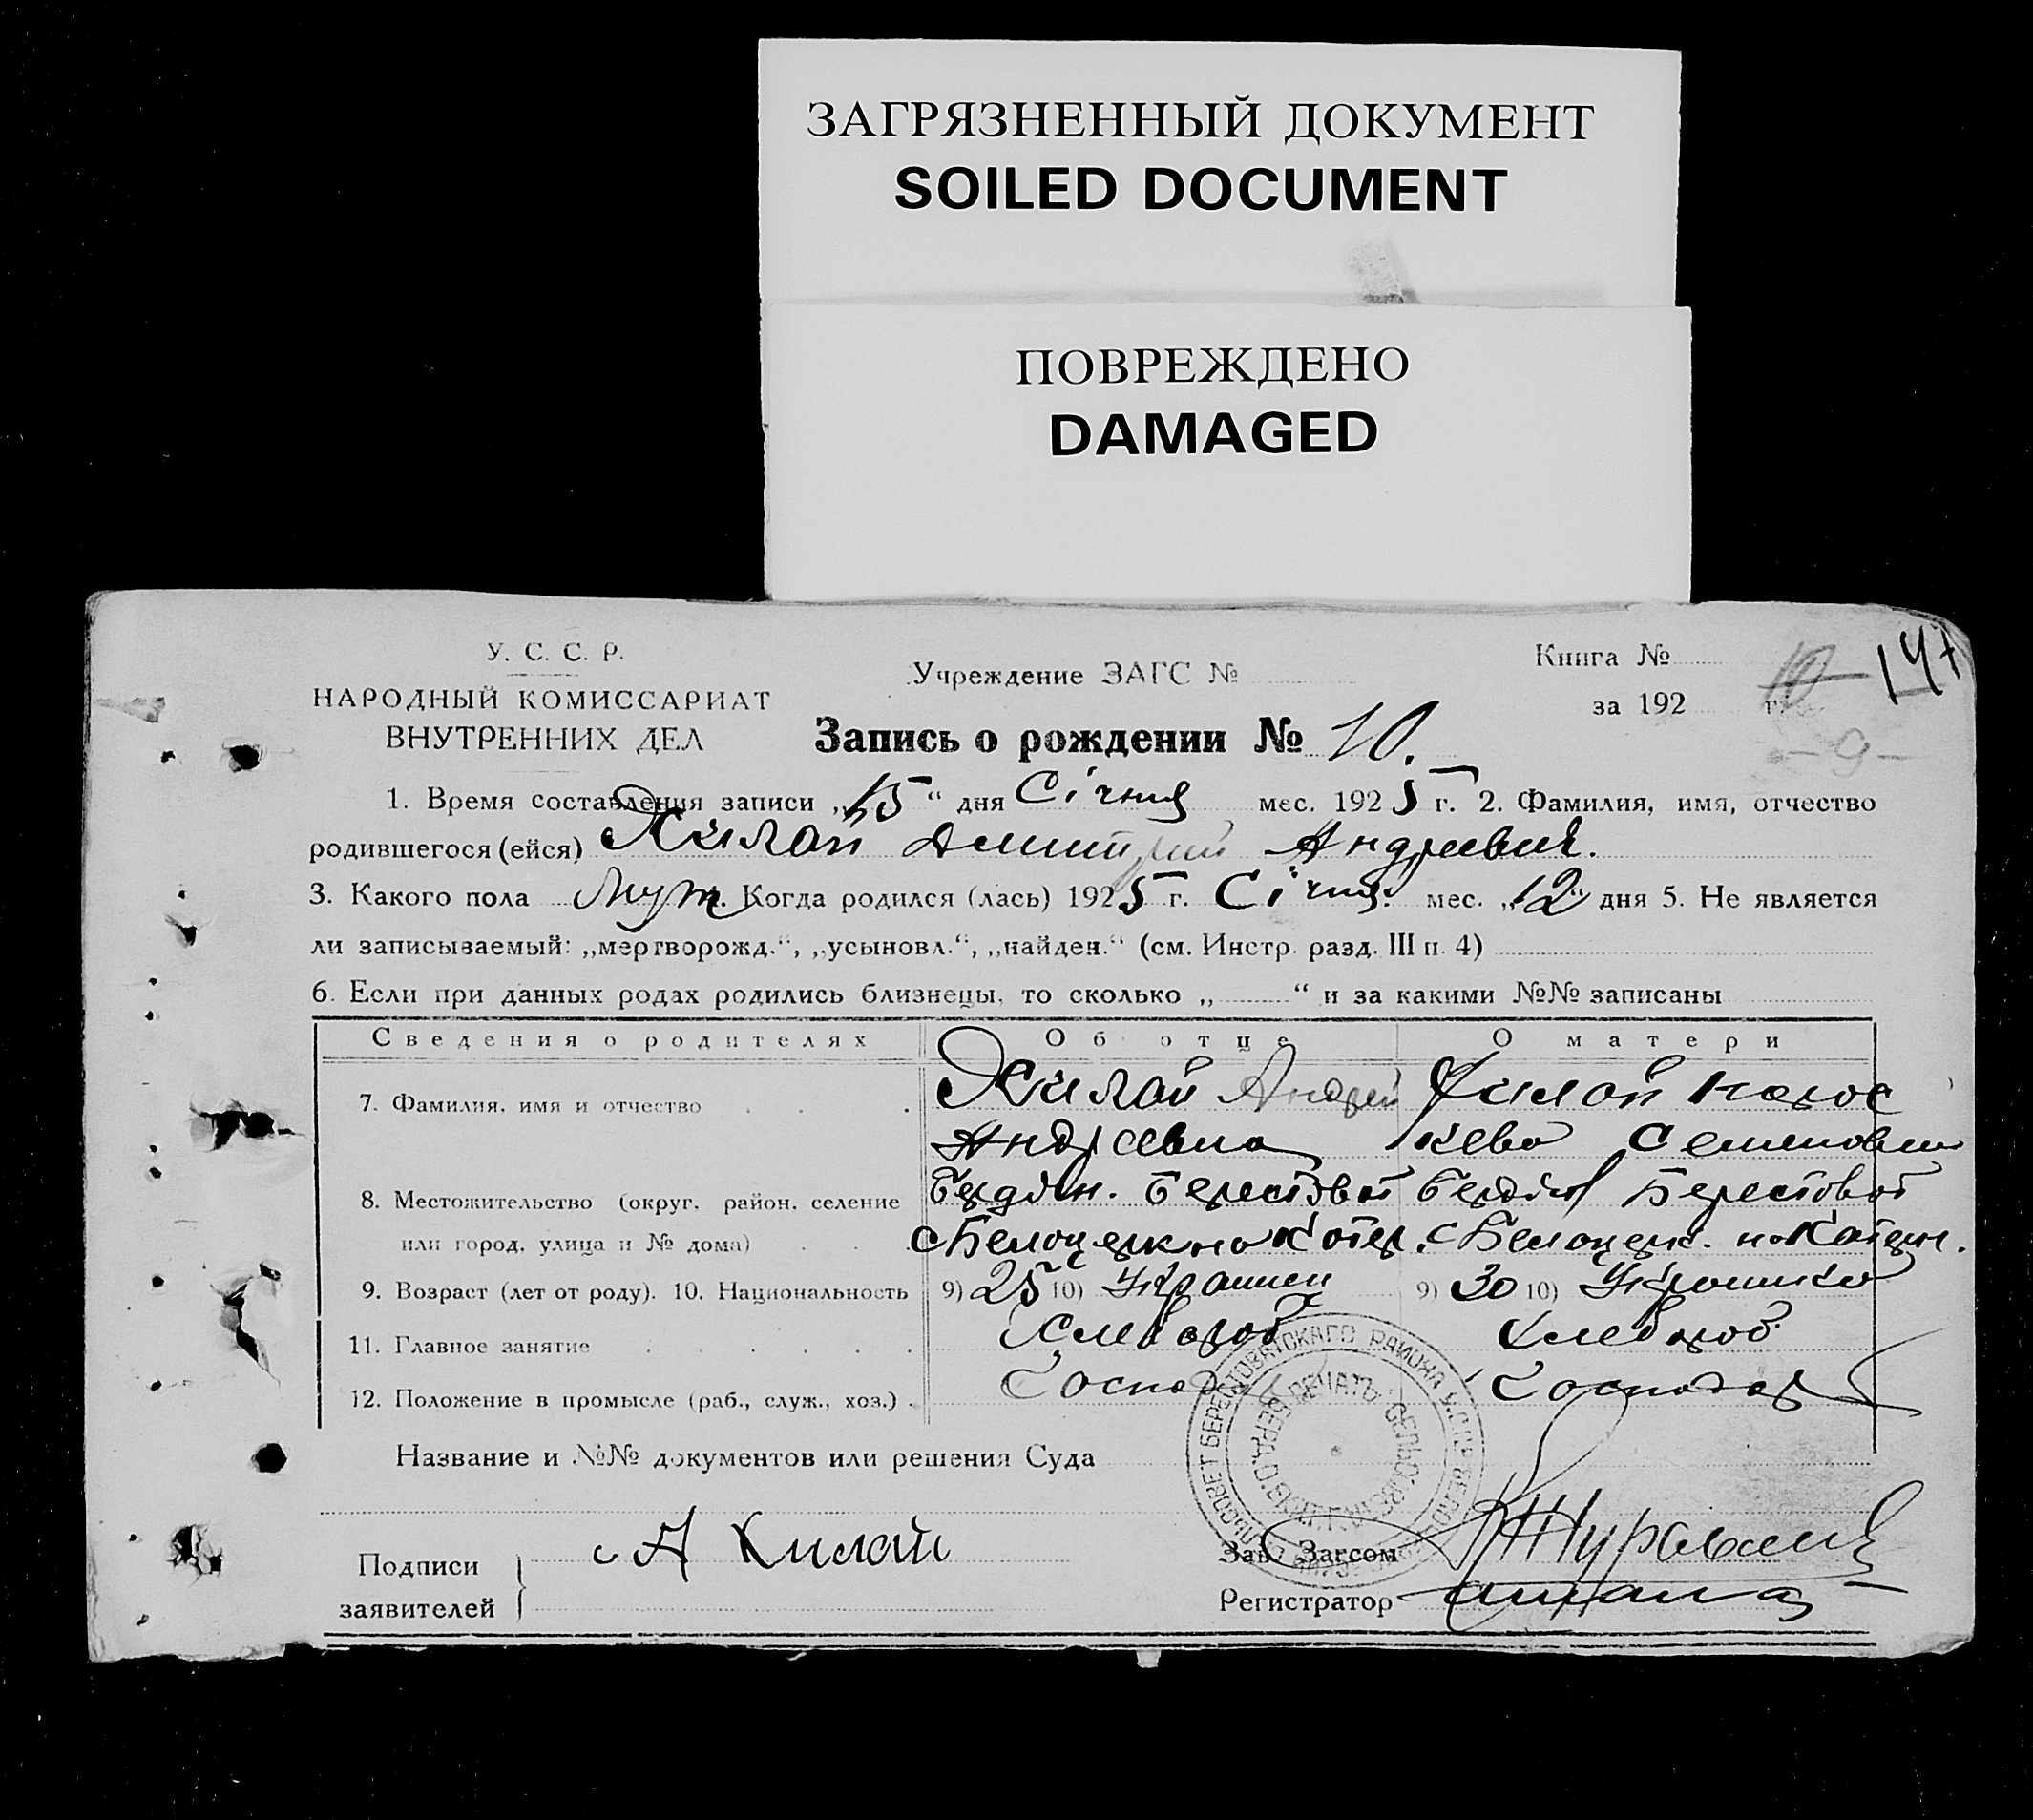 ЗАГРЯЗНЕННЫЙ ДОКУМЕНТ
SOILED DOCUMENT
ПОВРЕЖДЕНО
DAMAGED
У. С. С. Р.
НАРОДНЫЙ КОМИССАРИАТ
ВНУТРЕННИХ ДЕЛ
Учреждение ЗАГС №
Книга №
за 192 г.
10 147
- 9 -
Запись о рождении № 10.
1. Время составления записи „15“ дня Січня мес. 1925 г. 2. Фамилия, имя, отчество
родившегося (ейся) Хилай Димитрий Андреевич.
3. Какого пола Муж. Когда родился (лась) 1925 г. Січня мес. „12“ дня 5. Не является
ли записываемый: „мертворожд.“, „усыновл.“, „найден.“ (см. Инстр. разд. III п. 4)
6. Если при данных родах родились близнецы, то сколько „ “ и за какими №№ записаны
Сведения о родителях Об отце О матери
7. Фамилия, имя и отчество Хилай Андрей Хилай Парас
кева Семеновна
8. Местожительство (округ, район, селение Бердян. Берестоват Бердян Берестоват
или город, улица и № дома) с Белоцерк с Белоцерк.
9. Возраст (лет от роду). 10. Национальность 9) 25 10) Украинец 9) 30 10) Украинка
11. Главное занятие Хлебороб Хлебороб
12. Положение в промысле (раб., служ., хоз.) Господар Господар
Название и №№ документов или решения Суда
Подписи
заявителей
А Хилай
Зав. Загсом
Регистратор